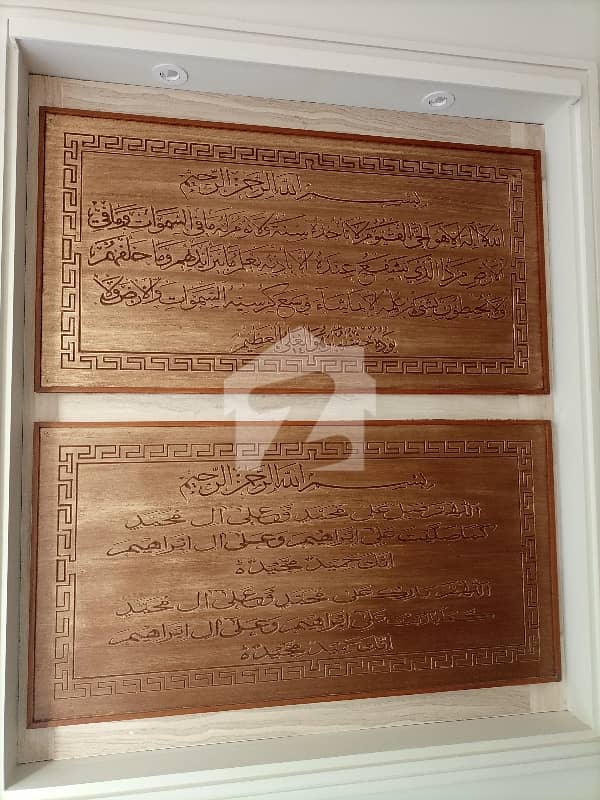 بسم الله الرحمن الرحيم
الله لا إله إلا هو الحي القيوم لا تأخذه سنة ولا نوم له ما في السموات وما في
الأرض من ذا الذي يشفع عنده إلا بإذنه يعلم ما بين أيديهم وما خلفهم
ولا يحيطون بشيء من علمه إلا بما شاء وسع كرسيه السموات والأرض ولا
يؤده حفظهما وهو العلي العظيم
بسم الله الرحمن الرحيم
اللهم صل على محمد وعلى آل محمد
كما صليت على إبراهيم وعلى آل إبراهيم
إنك حميد مجيد ه
اللهم بارك على محمد وعلى آل محمد
كما باركت على إبراهيم وعلى آل إبراهيم
إنك حميد مجيد ه